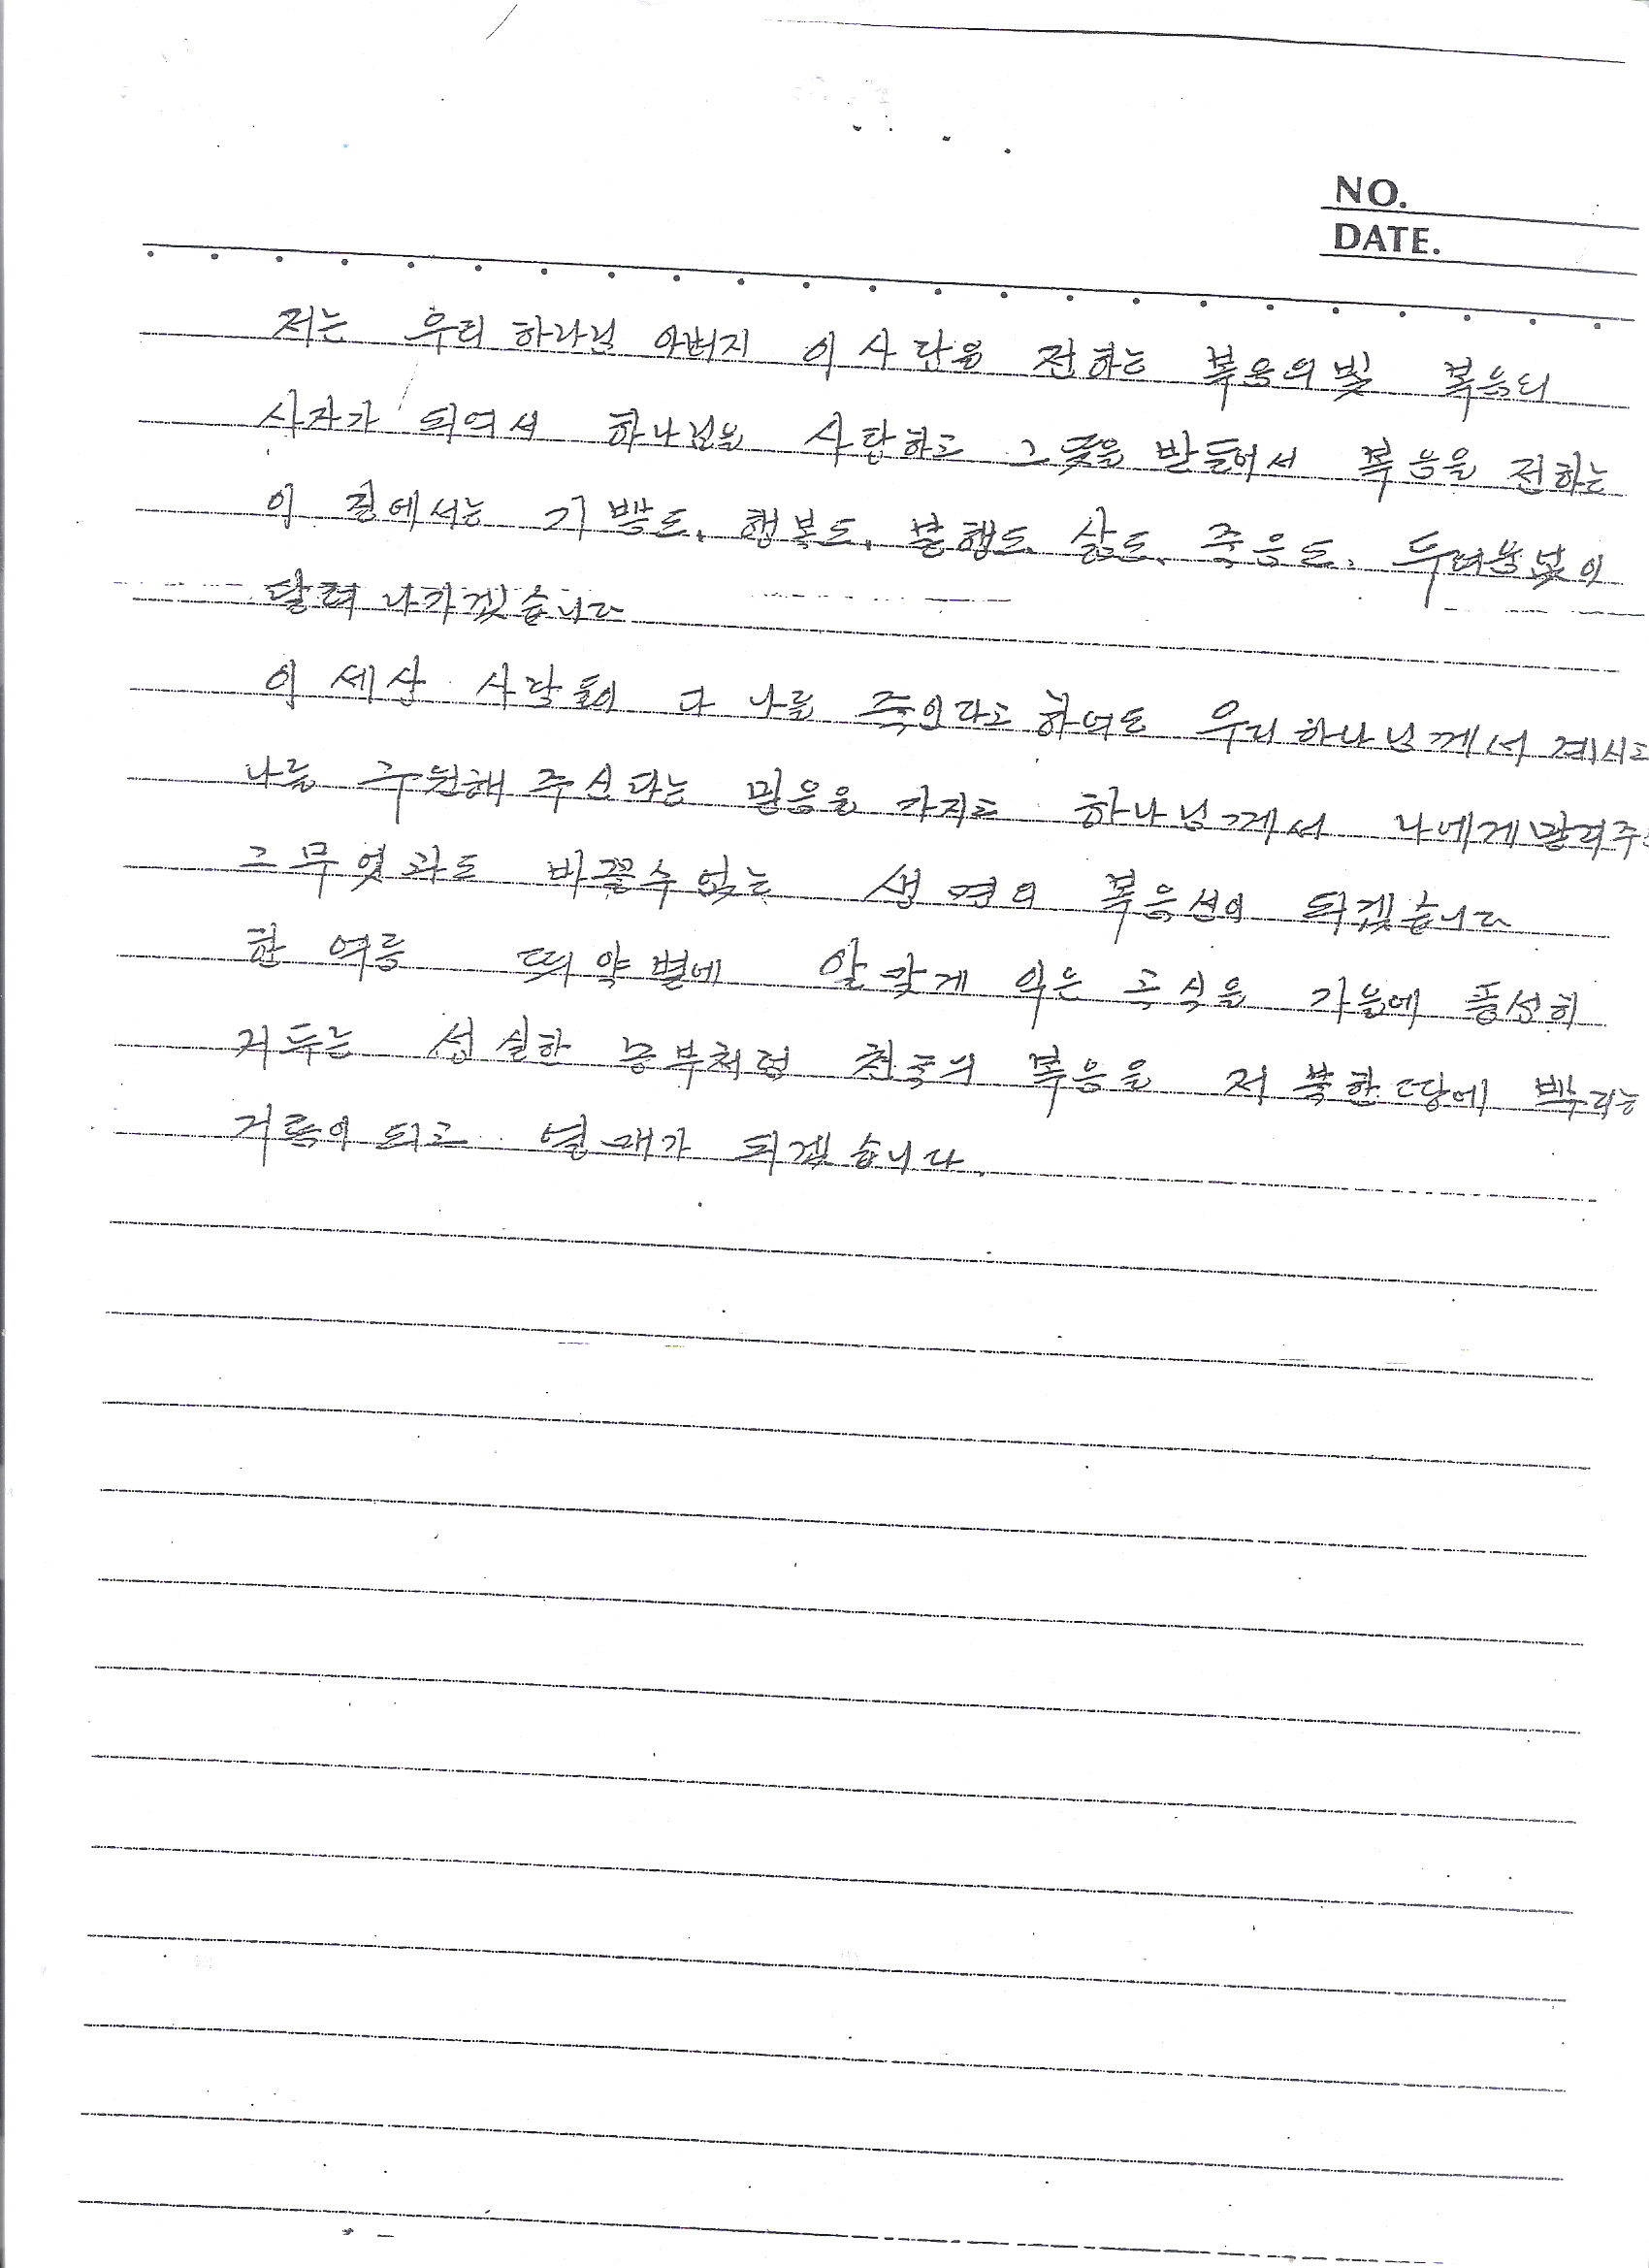 NO.
DATE.
저는 우리 하나님 아버지 이 사랑을 전하는 복음의 빛 복음의
사자가 되여서 하나님을 사랑하고 그 뜻을 받들어서 복음을 전하는
이 길에서는 기쁨도, 행복도, 불행도 삶도, 죽음도, 두려움 없이
달려 나가겠습니다
이 세상 사람들이 다 나를 죽인다고 하여도 우리 하나님께서 계시고
나를 구원해 주신다는 믿음을 가지고 하나님께서 나에게 맡겨주
그 무엇과도 바꿀수 없는 생명의 복음선이 되겠습니다
한 여름 뙤약볕에 알맞게 익은 곡식을 가을에 풍성히
거두는 성실한 농부처럼 천국의 복음을 저 북한 땅에 뿌리는
거름이 되고 열매가 되겠습니다.